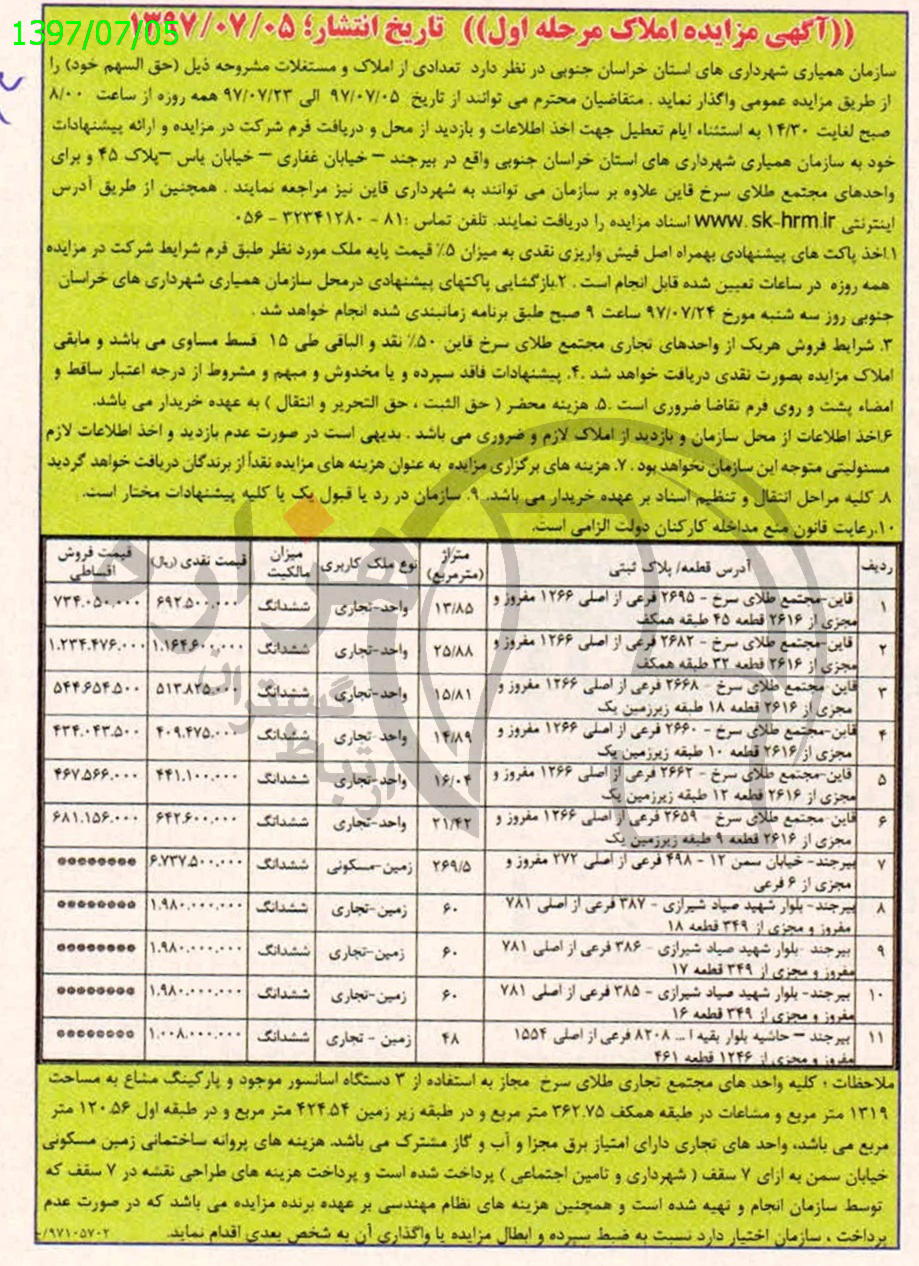 1397/07/05
((آگهی مزایده املاک مرحله اول)) تاریخ انتشار؛ ۱۳۹۷/۰۷/۰۵
سازمان همیاری شهرداری های استان خراسان جنوبی در نظر دارد تعدادی از املاک و مستغلات مشروحه ذیل (حق السهم خود) را
از طریق مزایده عمومی واگذار نماید . متقاضیان محترم می توانند از تاریخ ۹۷/۰۷/۰۵ الی ۹۷/۰۷/۲۳ همه روزه از ساعت ۸/۰۰
صبح لغایت ۱۴/۳۰ به استثناء ایام تعطیل جهت اخذ اطلاعات و بازدید از محل و دریافت فرم شرکت در مزایده و ارائه پیشنهادات
خود به سازمان همیاری شهرداری های استان خراسان جنوبی واقع در بیرجند – خیابان غفاری – خیابان یاس –پلاک ۴۵ و برای
واحدهای مجتمع طلای سرخ قاین علاوه بر سازمان می توانند به شهرداری قاین نیز مراجعه نمایند . همچنین از طریق آدرس
اینترنتی www. sk-hrm.ir اسناد مزایده را دریافت نمایند. تلفن تماس :۸۱ - ۳۲۳۴۱۲۸۰ - ۰۵۶
۱.اخذ پاکت های پیشنهادی بهمراه اصل فیش واریزی نقدی به میزان ۵٪ قیمت پایه ملک مورد نظر طبق فرم شرایط شرکت در مزایده
همه روزه در ساعات تعیین شده قابل انجام است . ۲.بازگشایی پاکتهای پیشنهادی درمحل سازمان همیاری شهرداری های خراسان
جنوبی روز سه شنبه مورخ ۹۷/۰۷/۲۴ ساعت ۹ صبح طبق برنامه زمانبندی شده انجام خواهد شد .
۳. شرایط فروش هریک از واحدهای تجاری مجتمع طلای سرخ قاین ۵۰٪ نقد و الباقی طی ۱۵ قسط مساوی می باشد و مابقی
املاک مزایده بصورت نقدی دریافت خواهد شد .۴. پیشنهادات فاقد سپرده و یا مخدوش و مبهم و مشروط از درجه اعتبار ساقط و
امضاء پشت و روی فرم تقاضا ضروری است .۵. هزینه محضر ( حق الثبت ، حق التحریر و انتقال ) به عهده خریدار می باشد.
۶.اخذ اطلاعات از محل سازمان و بازدید از املاک لازم و ضروری می باشد . بدیهی است در صورت عدم بازدید و اخذ اطلاعات لازم
مسئولیتی متوجه این سازمان نخواهد بود .۷. هزینه های برگزاری مزایده به عنوان هزینه های مزایده نقداً از برندگان دریافت خواهد گردید
۸. کلیه مراحل انتقال و تنظیم اسناد بر عهده خریدار می باشد. ۹. سازمان در رد یا قبول یک یا کلیه پیشنهادات مختار است.
۱۰.رعایت قانون منع مداخله کارکنان دولت الزامی است.
ردیف آدرس قطعه/ پلاک ثبتی متراژ (مترمربع) نوع ملک کاربری میزان مالکیت قیمت نقدی (ریال) قیمت فروش اقساطی
۱ قاین-مجتمع طلای سرخ - ۲۶۹۵ فرعی از اصلی ۱۲۶۶ مفروز و مجزی از ۲۶۱۶ قطعه ۴۵ طبقه همکف ۱۳/۸۵ واحد-تجاری ششدانگ ۶۹۲.۵۰۰.۰۰۰ ۷۳۴.۰۵۰.۰۰۰
۲ قاین-مجتمع طلای سرخ - ۲۶۸۲ فرعی از اصلی ۱۲۶۶ مفروز و مجزی از ۲۶۱۶ قطعه ۳۲ طبقه همکف ۲۵/۸۸ واحد-تجاری ششدانگ ۱.۱۶۴.۶۰۰.۰۰۰ ۱.۲۳۴.۴۷۶.۰۰۰
۳ قاین-مجتمع طلای سرخ - ۲۶۶۸ فرعی از اصلی ۱۲۶۶ مفروز و مجزی از ۲۶۱۶ قطعه ۱۸ طبقه زیرزمین یک ۱۵/۸۱ واحد-تجاری ششدانگ ۵۱۳.۸۲۵.۰۰۰ ۵۴۴.۶۵۴.۵۰۰
۴ قاین-مجتمع طلای سرخ - ۲۶۶۰ فرعی از اصلی ۱۲۶۶ مفروز و مجزی از ۲۶۱۶ قطعه ۱۰ طبقه زیرزمین یک ۱۴/۸۹ واحد تجاری ششدانگ ۴۰۹.۴۷۵.۰۰۰ ۴۳۴.۰۴۳.۵۰۰
۵ قاین-مجتمع طلای سرخ - ۲۶۶۲ فرعی از اصلی ۱۲۶۶ مفروز و مجزی از ۲۶۱۶ قطعه ۱۲ طبقه زیرزمین یک ۱۶/۰۴ واحد-تجاری ششدانگ ۴۴۱.۱۰۰.۰۰۰ ۴۶۷.۵۶۶.۰۰۰
۶ قاین-مجتمع طلای سرخ ۲۶۵۹ فرعی از اصلی ۱۲۶۶ مفروز و مجزی از ۲۶۱۶ قطعه ۹ طبقه زیرزمین یک ۲۱/۴۲ واحد-تجاری ششدانگ ۶۴۲.۶۰۰.۰۰۰ ۶۸۱.۱۵۶.۰۰۰
۷ بیرجند- خیابان سمن ۱۲ - ۴۹۸ فرعی از اصلی ۲۷۲ مفروز و مجزی از ۶ فرعی ۲۶۹/۵ زمین-مسکونی ششدانگ ۶.۷۳۷.۵۰۰.۰۰۰ ********
۸ بیرجند- بلوار شهید صیاد شیرازی - ۳۸۷ فرعی از اصلی ۷۸۱ مفروز و مجزی از ۳۴۹ قطعه ۱۸ ۶۰ زمین-تجاری ششدانگ ۱.۹۸۰.۰۰۰.۰۰۰ ********
۹ بیرجند -بلوار شهید صیاد شیرازی - ۳۸۶ فرعی از اصلی ۷۸۱ مفروز و مجزی از ۳۴۹ قطعه ۱۷ ۶۰ زمین-تجاری ششدانگ ۱.۹۸۰.۰۰۰.۰۰۰ ********
۱۰ بیرجند- بلوار شهید صیاد شیرازی - ۳۸۵ فرعی از اصلی ۷۸۱ مفروز و مجزی از ۳۴۹ قطعه ۱۶ ۶۰ زمین-تجاری ششدانگ ۱.۹۸۰.۰۰۰.۰۰۰ ********
۱۱ بیرجند – حاشیه بلوار بقیه ا... ۸۲۰۸ فرعی از اصلی ۱۵۵۴ مفروز و مجزی از ۱۲۴۶ قطعه ۴۶۱ ۴۸ زمین - تجاری ششدانگ ۱.۰۰۸.۰۰۰.۰۰۰ ********
ملاحظات : کلیه واحد های مجتمع تجاری طلای سرخ مجاز به استفاده از ۳ دستگاه آسانسور موجود و پارکینگ مشاع به مساحت
۱۳۱۹ متر مربع و مشاعات در طبقه همکف ۳۶۲.۷۵ متر مربع و در طبقه زیر زمین ۴۲۴.۵۴ متر مربع و در طبقه اول ۱۲۰.۵۶ متر
مربع می باشد، واحد های تجاری دارای امتیاز برق مجزا و آب و گاز مشترک می باشد. هزینه های پروانه ساختمانی زمین مسکونی
خیابان سمن به ازای ۷ سقف ( شهرداری و تامین اجتماعی ) پرداخت شده است و پرداخت هزینه های طراحی نقشه در ۷ سقف که
توسط سازمان انجام و تهیه شده است و همچنین هزینه های نظام مهندسی بر عهده برنده مزایده می باشد که در صورت عدم
پرداخت ، سازمان اختیار دارد نسبت به ضبط سپرده و ابطال مزایده یا واگذاری آن به شخص بعدی اقدام نماید. ۹۷۱۰۵۷۰۲/